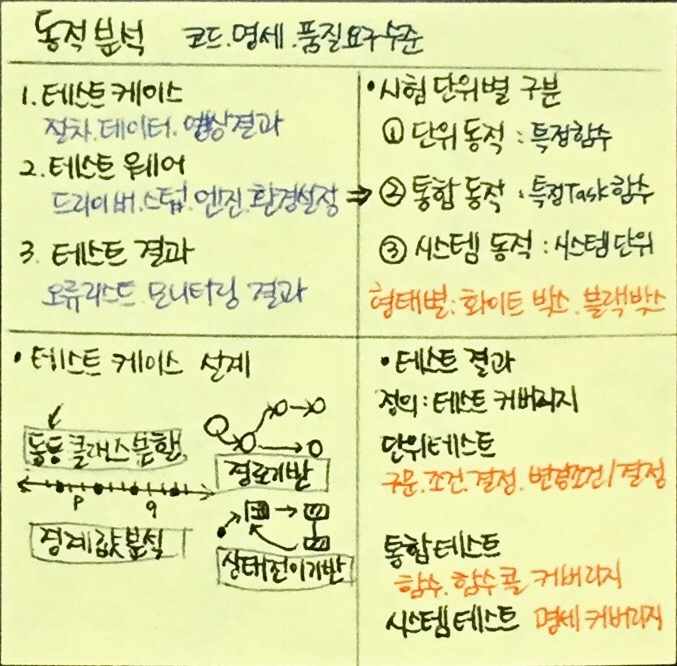 동적분석 코드.명세.품질요구수준
1. 테스트케이스
절차.데이터.예상결과
2. 테스트 웨어
드라이버.스텁.엔진.환경설정 ⇒
3. 테스트 결과
오류리스트 모니터링 결과
• 시험단위별 구분
① 단위동적 : 특정함수
② 통합 동작 : 특정Task함수
③ 시스템 동적 : 시스템단위
형태별 : 화이트 박스. 블랙박스
• 테스트 케이스 설계
동등클래스분할
p q
경계값분석
경로기반
상태전이기반
• 테스트 결과
정의 : 테스트 커버리지
단위테스트
구문.조건.결정.변경조건/결정
통합테스트
함수.함수콜 커버리지
시스템테스트 명세커버리지